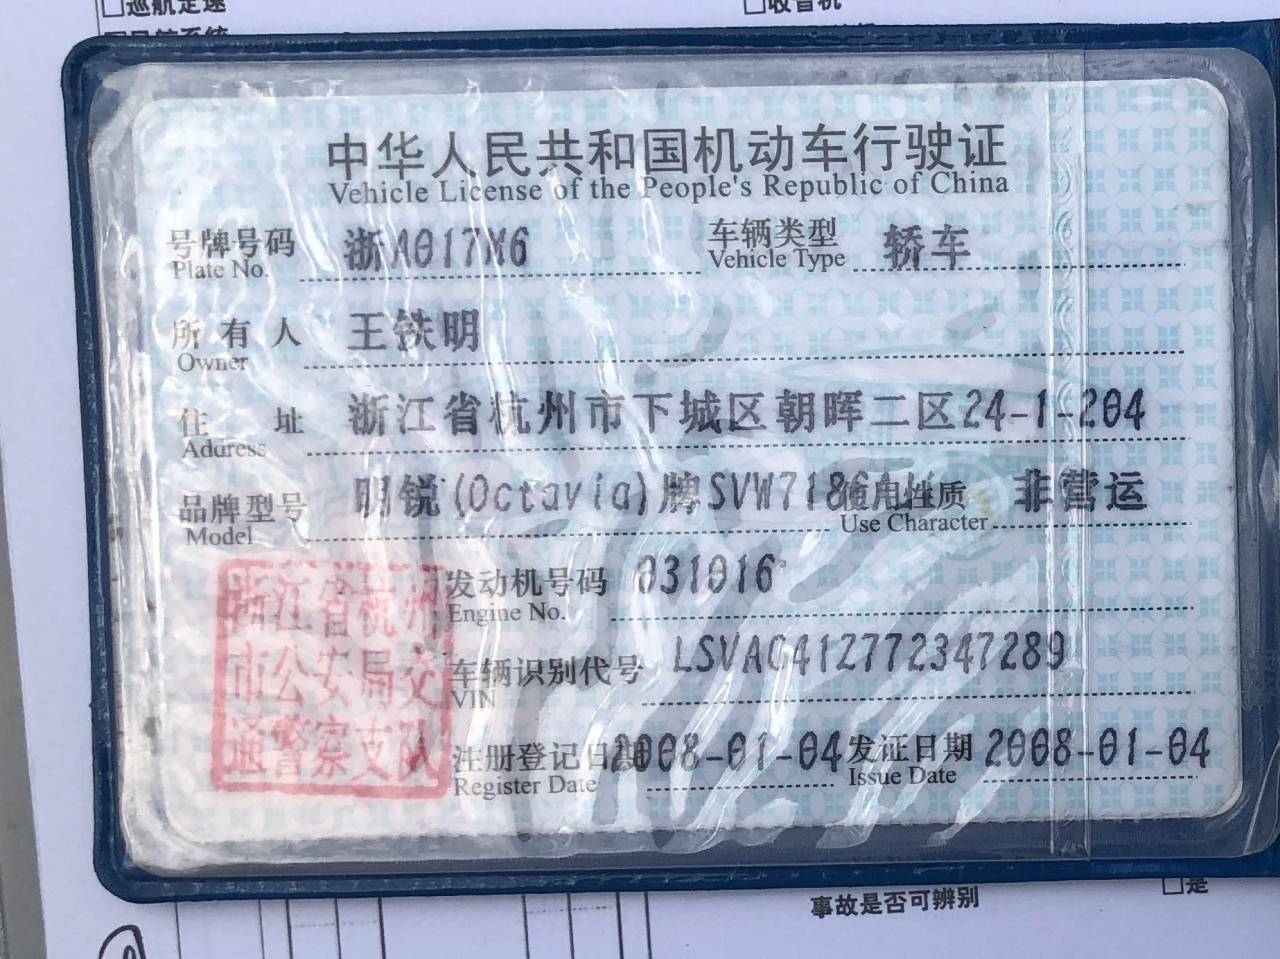 □巡航定速 □收音机
中华人民共和国机动车行驶证
Vehicle License of the People's Republic of China
号牌号码 浙A017M6 车辆类型 轿车
Plate No. Vehicle Type
所有人 王铁明
Owner
住址 浙江省杭州市下城区朝晖二区24-1-204
Address
品牌型号 明锐(Octavia)牌SVW7186 使用性质 非营运
Model Use Character
浙江省杭州
市公安局交
通警察支队
发动机号码 031016
Engine No.
车辆识别代号 LSVAC412772347289
VIN
注册登记日期 2008-01-04 发证日期 2008-01-04
Register Date Issue Date
事故是否可辨别 □是